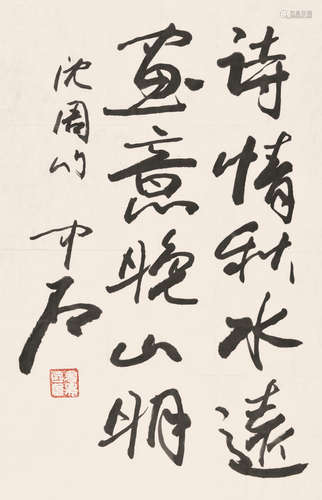 诗情秋水远
画意晚山明
沈周句
中石